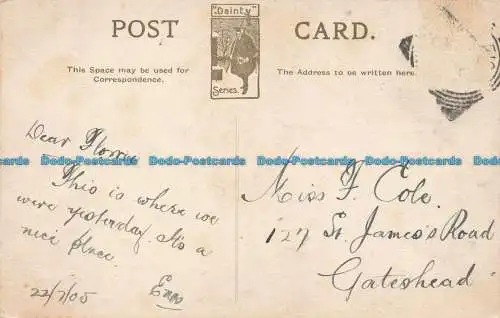 POST CARD.
"Dainty"
Series.
This Space may be used for
Correspondence.
The Address to be written here.
Dear Florrie
This is where we
were yesterday. It's a
nice place.
22/7/05
Miss F. Cole.
127 St. James's Road
Gateshead
Dodo-Postcards Dodo-Postcards Dodo-Postcards Dodo-Postcards Dodo-Postcards Dodo-Postcards